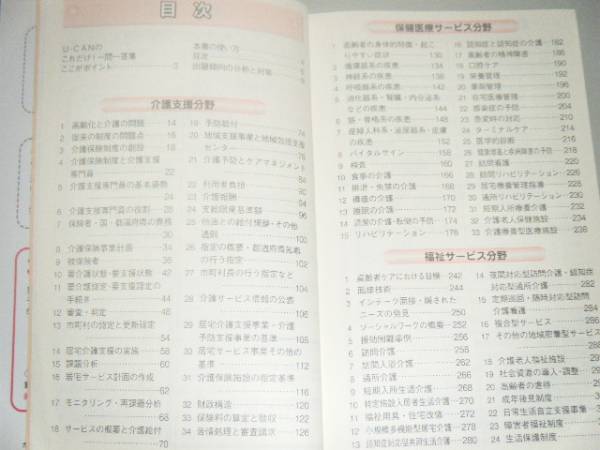 目次
U-CANの
これだけ!一問一答集
ここがポイント 3
本書の使い方
目次
出題傾向の分析と対策
介護支援分野
1 高齢化と介護の問題 14
2 従来の制度の問題点 16
3 介護保険制度の創設 18
4 介護保険制度と介護支援
専門員 22
5 介護支援専門員の基本姿勢
6 介護支援専門員の役割 28
7 保険者・国・都道府県の責務
8 介護保険事業計画 34
9 被保険者 36
10 要介護状態・要支援状態 42
11 要介護認定・要支援認定の
手続き 44
12 審査・判定 48
13 市町村の認定と更新認定
14 居宅介護支援の実施 58
15 課題分析 60
16 居宅サービス計画の作成
62
17 モニタリング・再課題分析
68
18 サービスの概要と介護給付
70
19 予防給付 74
20 地域支援事業と地域包括支援
センター 76
21 介護予防とケアマネジメント
84
22 利用者負担 90
23 介護報酬 94
24 支給限度基準額 96
25 他法との給付調整・その他
通則 100
26 指定の概要・都道府県知事
の行う指定 102
27 市町村長の行う指定など
106
28 介護サービス情報の公表
29 居宅介護支援事業・介護
予防支援事業の基準
30 居宅サービス事業その他の
基準 112
31 介護保険施設の指定基準
116
32 財政構造 120
33 保険料の算定と徴収 122
34 苦情処理と審査請求 126
保健医療サービス分野
1 高齢者の身体的特徴・起こ
りやすい症状 130
2 循環器系の疾患 138
3 神経系の疾患
4 呼吸器系の疾患 142
5 消化器系・腎臓・内分泌系
などの疾患 144
6 筋・骨格系の疾患 148
7 産婦人科系・泌尿器系・皮膚
の疾患 152
8 バイタルサイン 158
9 検査 160
10 食事の介護 166
11 排泄・失禁の介護 168
12 褥瘡の介護 170
13 睡眠の介護
14 洗髪の介護・転倒の予防 174
15 リハビリテーション
16 認知症と認知症の介護 182
17 高齢者の精神障害 186
18 口腔ケア 190
19 栄養管理
20 薬剤管理
21 在宅医療管理 200
22 感染症の予防
23 急変時の対応
24 ターミナルケア
25 医学的診断
26 健康増進と疾病障害の予防 218
27 訪問看護
28 訪問リハビリテーション 226
29 居宅療養管理指導 228
30 通所リハビリテーション 230
31 短期入所療養介護 232
32 介護老人保健施設 234
33 介護療養型医療施設 238
福祉サービス分野
1 高齢者ケアにおける目標 242
2 面接技術 244
3 インテーク面接・隠された
ニーズの発見 250
4 ソーシャルワークの概要 252
5 援助困難事例 256
6 訪問介護 258
7 訪問入浴介護
8 通所介護 266
9 短期入所生活介護
10 特定施設入居者生活介護
11 福祉用具・住宅改修
12 小規模多機能型居宅介護
13 認知症対応型共同生活介護 280
14 夜間対応型訪問介護・認知症
対応型通所介護 282
15 定期巡回・随時対応型訪問
介護看護 284
16 複合型サービス 286
17 その他の地域密着型サービス
18 介護老人福祉施設
19 社会資源の導入・調整
20 高齢者の虐待
21 成年後見制度
22 日常生活自立支援事業
23 障害者福祉制度
24 生活保護制度